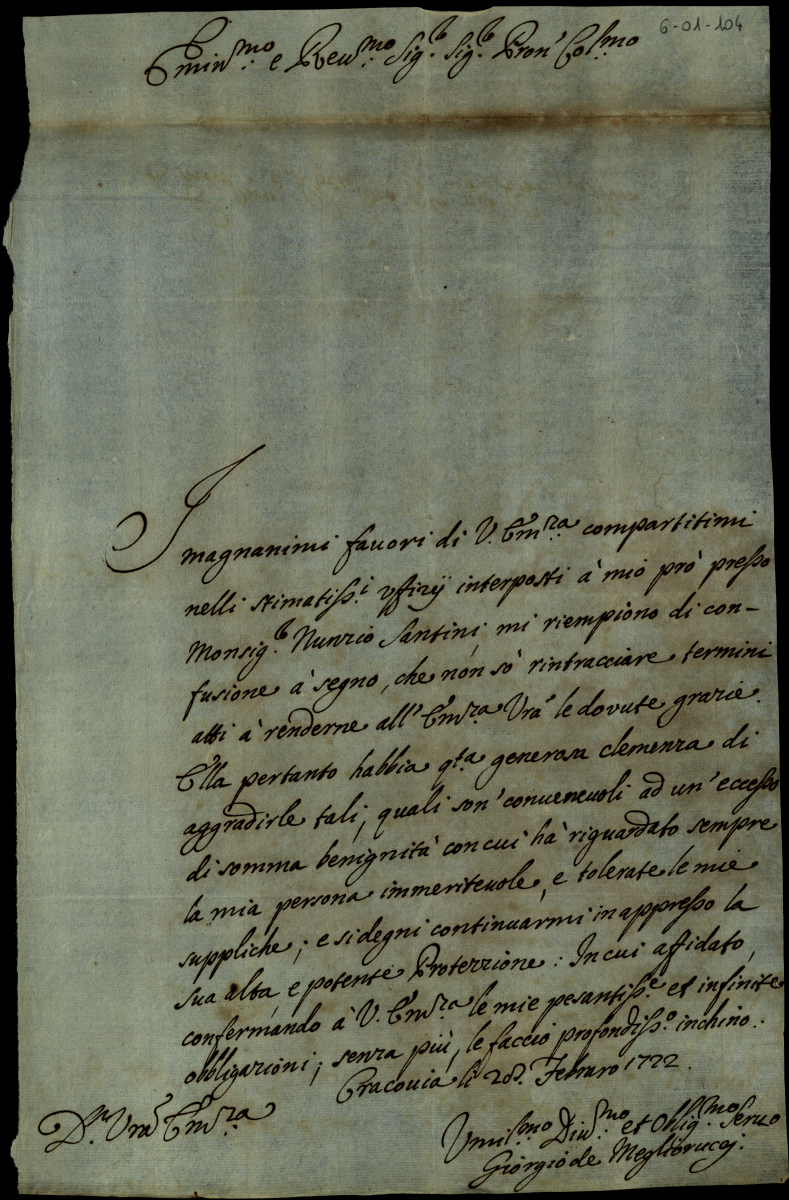 6-01-104
Emin.mo e Reu.mo Sig.r Sig.r Pron' Col.mo
I magnanimi fauori di V. Em.za compartitimi
nelli stimatiss.i vffizÿ interposti à mio prò presso
Monsig.r Nunzio Santini mi riempiono di con-
fusione à segno, che nòn sò rintracciare termini
atti à renderne all' Em.za Vrã le dovute grazie.
Ella pertanto habbia q.ta generosa clemenza di
aggradirle tali, quali son' conueneuoli ad un' eccesso
di somma benignità con cui hà riguardato sempre
la mia persona immeriteuole, e tolerate le mie
suppliche; e si degni continuarmi in appresso la
sua alta, e potente Protezzione: In cui affidato,
confermando à V. Em.za le mie pesantiss.e et infinite
obbligazioni; senza più, le faccio profondiss.o inchino.
Cracouia li 28. Febraro 1722.
D.a Vrã Em.za
Vmil.mo Diu.mo et Oblig.mo Seruo
Giorgio de Megliorucci.